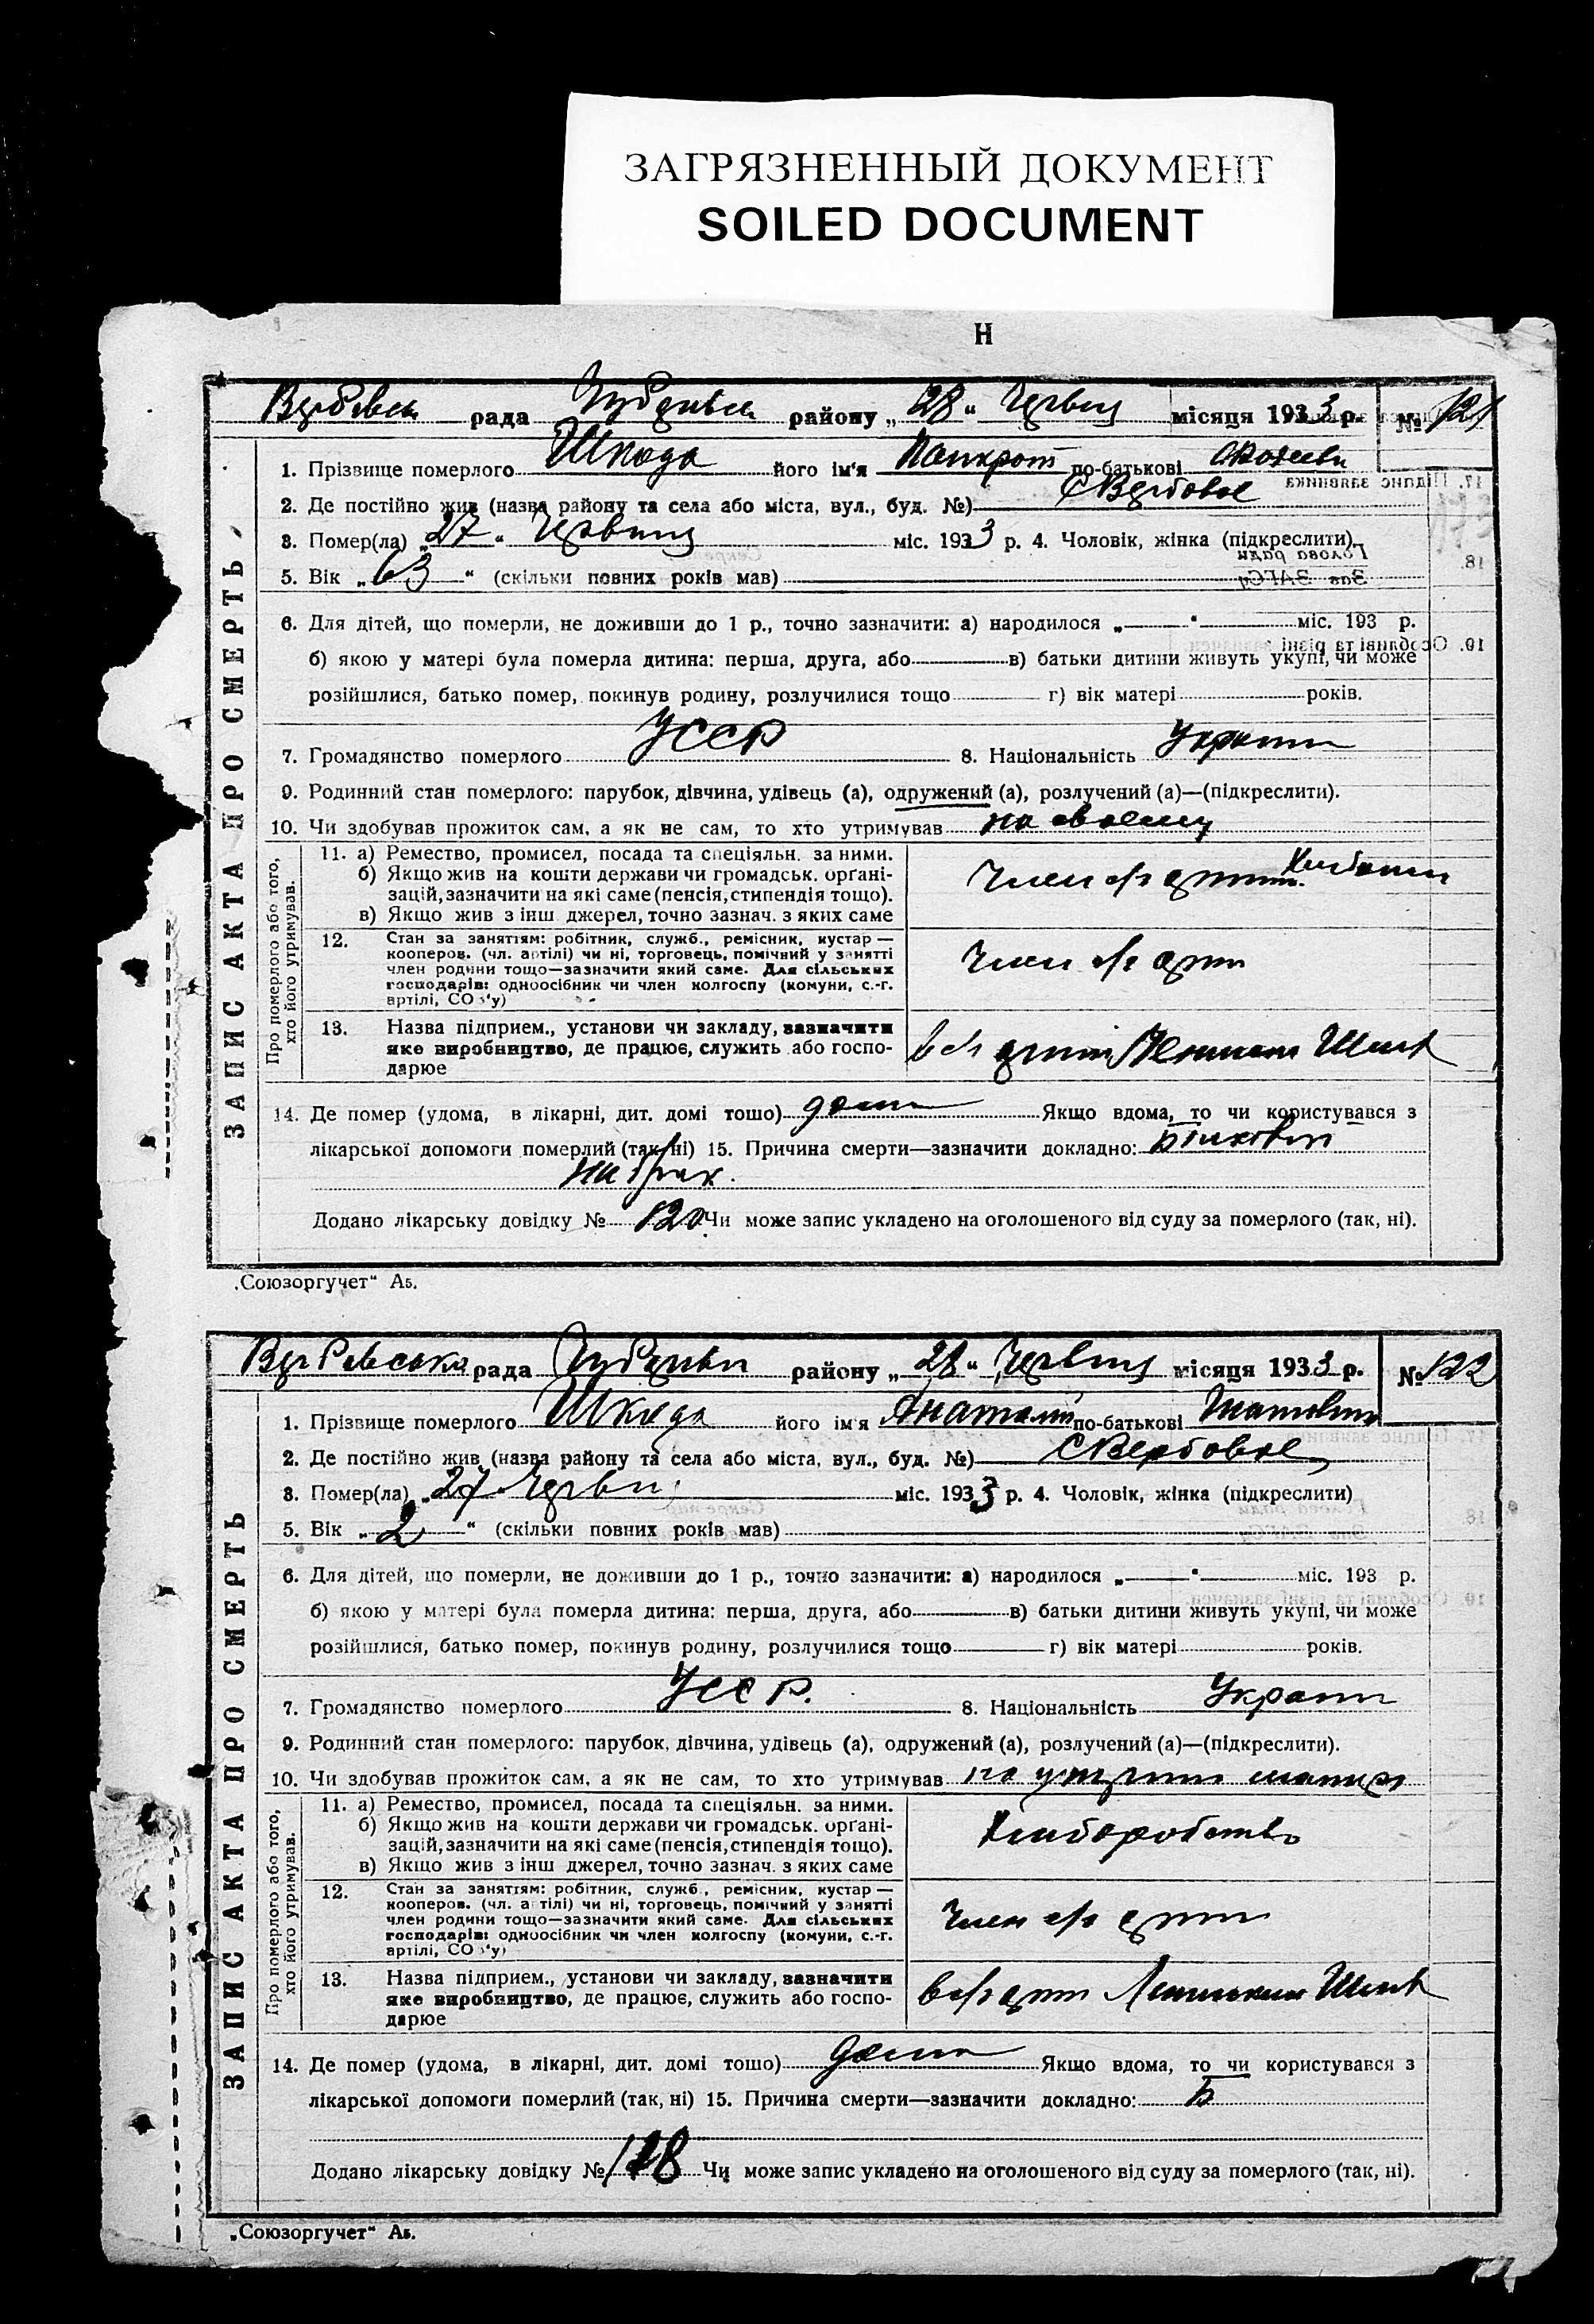 ЗАГРЯЗНЕННЫЙ ДОКУМЕНТ
SOILED DOCUMENT
Н
рада району „28“ Червня місяця 1933 р. № 121
1. Прізвище померлого Шкода його ім'я Панкрат по-батькові
2. Де постійно жив (назва району та села або міста, вул., буд. №) с Вербовое
3. Помер(ла) „27“ Червня міс. 1933 р. 4. Чоловік, жінка (підкреслити)
5. Вік „63“ (скільки повних років мав)
6. Для дітей, що померли, не доживши до 1 р., точно зазначити: а) народилося „ “ міс. 193 р.
б) якою у матері була померла дитина: перша, друга, або в) батьки дитини живуть укупі, чи може
розійшлися, батько помер, покинув родину, розлучилися тощо г) вік матері років.
7. Громадянство померлого УССР 8. Національність
9. Родинний стан померлого: парубок, дівчина, удівець (а), одружений (а), розлучений (а)—(підкреслити).
10. Чи здобував прожиток сам, а як не сам, то хто утримував
ЗАПИС АКТА ПРО СМЕРТЬ
Про померлого або того, хто його утримував.
11. а) Ремество, промисел, посада та спеціяльн. за ними.
б) Якщо жив на кошти держави чи громадськ. органі-
зацій, зазначити на які саме (пенсія, стипендія тощо).
в) Якщо жив з інш джерел, точно зазнач. з яких саме
Член
12. Стан за заняттям: робітник, служб., ремісник, кустар —
кооперов. (чл. артілі) чи ні, торговець, помічний у занятті
член родини тощо—зазначити який саме. Для сільських
господарів: одноосібник чи член колгоспу (комуни, с.-г.
артілі, СОЗ'у)
Член
13. Назва підприєм., установи чи закладу, зазначити
яке виробництво, де працює, служить або госпо-
дарює
Шлях
14. Де помер (удома, в лікарні, дит. домі тощо) дома Якщо вдома, то чи користувався з
лікарської допомоги померлий (так, ні) 15. Причина смерти—зазначити докладно:
Додано лікарську довідку № 120 Чи може запис укладено на оголошеного від суду за померлого (так, ні).
„Союзоргучет“ Аб.
Вербівська рада району „28“ Червня місяця 1933 р. № 122
1. Прізвище померлого Шкода його ім'я Анатолій по-батькові
2. Де постійно жив (назва району та села або міста, вул., буд. №) с Вербовое
3. Помер(ла) „27 Червня міс. 1933 р. 4. Чоловік, жінка (підкреслити)
5. Вік „2“ (скільки повних років мав)
6. Для дітей, що померли, не доживши до 1 р., точно зазначити: а) народилося „ “ міс. 193 р.
б) якою у матері була померла дитина: перша, друга, або в) батьки дитини живуть укупі, чи може
розійшлися, батько помер, покинув родину, розлучилися тощо г) вік матері років.
7. Громадянство померлого УССР. 8. Національність
9. Родинний стан померлого: парубок, дівчина, удівець (а), одружений (а), розлучений (а)—(підкреслити).
10. Чи здобував прожиток сам, а як не сам, то хто утримував
ЗАПИС АКТА ПРО СМЕРТЬ
Про померлого або того, хто його утримував.
11. а) Ремество, промисел, посада та спеціяльн. за ними.
б) Якщо жив на кошти держави чи громадськ. органі-
зацій, зазначити на які саме (пенсія, стипендія тощо).
в) Якщо жив з інш джерел, точно зазнач. з яких саме
Хліборобство
12. Стан за заняттям: робітник, служб., ремісник, кустар —
кооперов. (чл. артілі) чи ні, торговець, помічний у занятті
член родини тощо—зазначити який саме. Для сільських
господарів: одноосібник чи член колгоспу (комуни, с.-г.
артілі, СОЗ'у)
Член
13. Назва підприєм., установи чи закладу, зазначити
яке виробництво, де працює, служить або госпо-
дарює
Шлях
14. Де помер (удома, в лікарні, дит. домі тощо) дома Якщо вдома, то чи користувався з
лікарської допомоги померлий (так, ні) 15. Причина смерти—зазначити докладно:
Додано лікарську довідку № Чи може запис укладено на оголошеного від суду за померлого (так, ні).
„Союзоргучет“ Аб.